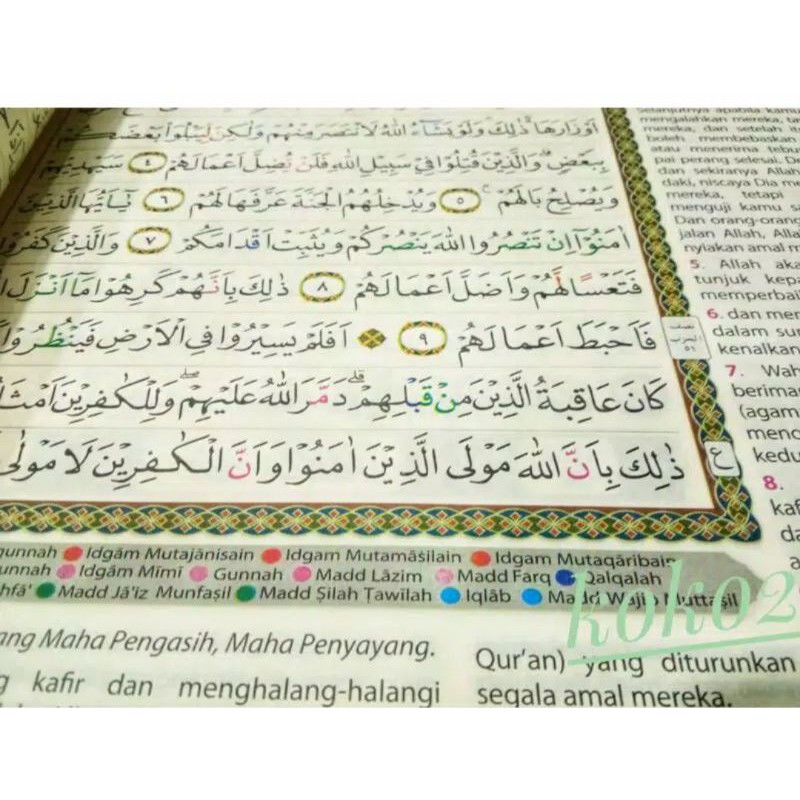 اَوْزَارَهَا ذٰلِكَ وَلَوْ يَشَاۤءُ اللّٰهُ لَانْتَصَرَ مِنْهُمْ وَلٰكِنْ لِّيَبْلُوَا۟ بَعْضَكُمْ
بِبَعْضٍ وَالَّذِيْنَ قُتِلُوْا فِيْ سَبِيْلِ اللّٰهِ فَلَنْ يُّضِلَّ اَعْمَالَهُمْ ٤ سَيَهْدِيْهِمْ
وَيُصْلِحُ بَالَهُمْ ٥ وَيُدْخِلُهُمُ الْجَنَّةَ عَرَّفَهَا لَهُمْ ٦ يٰٓاَيُّهَا الَّذِيْنَ
اٰمَنُوْٓا اِنْ تَنْصُرُوا اللّٰهَ يَنْصُرْكُمْ وَيُثَبِّتْ اَقْدَامَكُمْ ٧ وَالَّذِيْنَ كَفَرُوْا
فَتَعْسًا لَّهُمْ وَاَضَلَّ اَعْمَالَهُمْ ٨ ذٰلِكَ بِاَنَّهُمْ كَرِهُوْا مَآ اَنْزَلَ
فَاَحْبَطَ اَعْمَالَهُمْ ٩ اَفَلَمْ يَسِيْرُوْا فِى الْاَرْضِ فَيَنْظُرُوْا
كَانَ عَاقِبَةُ الَّذِيْنَ مِنْ قَبْلِهِمْ ۗ دَمَّرَ اللّٰهُ عَلَيْهِمْ ۖ وَلِلْكٰفِرِيْنَ
ذٰلِكَ بِاَنَّ اللّٰهَ مَوْلَى الَّذِيْنَ اٰمَنُوْا وَاَنَّ الْكٰفِرِيْنَ لَا مَوْلٰى
ع
mengalahkan mereka,
mereka, dan setelah
boleh membebaskan
atau menerima
pai perang selesai.
dan sekiranya Allah
daki, niscaya Dia
mereka, tetapi
menguji kamu
Dan
jalan Allah,
nyiakan amal
5. Allah
tunjuk
6. dan
dalam
kenalkan
7.
8.
Idgām Mutajānisain Idgam Mutamāṡilain Idgam Mutaqāribain
Idgām Mīmī Gunnah Madd Lāzim Madd Farq Qalqalah
Madd Jā'iz Munfaṣil Madd Ṣilah Ṭawīlah Iqlāb Madd Wajib Muttaṣil
Maha Pengasih, Maha Penyayang.
kafir dan menghalang-halangi
Qur'an) yang diturunkan
segala amal mereka.
koko2